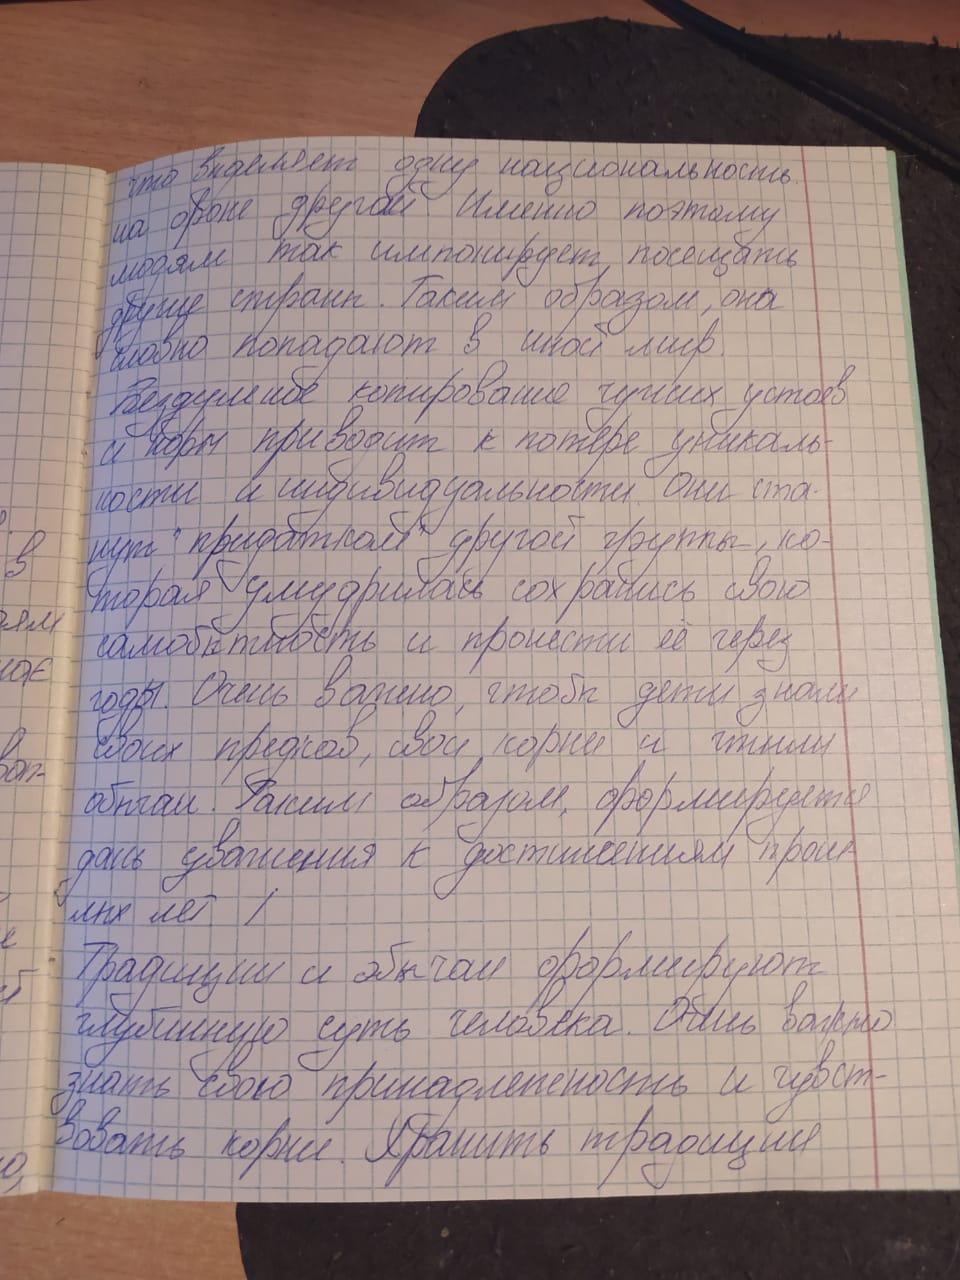 что выделяет одну национальность
на фоне другой Именно поэтому
людям так импонирует посещать
другие страны. Таким образом, она
словно попадают в иной мир.
Бездумное копирование чужих устоев
и норм приводит к потере уникаль-
ности и индивидуальности. Они ста-
нут "придатком" другой группы, ко-
торая умудрилась сохранись свою
самобытность и пронести её через
годы. Очень важно, чтобы дети знали
своих предков, свои корни и чтили
обычаи. Таким образом, формируется
дань уважения к достижениям прош
лых лет
Традиции и обычаи формируют
глубинную суть человека. Очень важно
знать свою принадлежность и чувст-
вовать корни. Хранить традиции